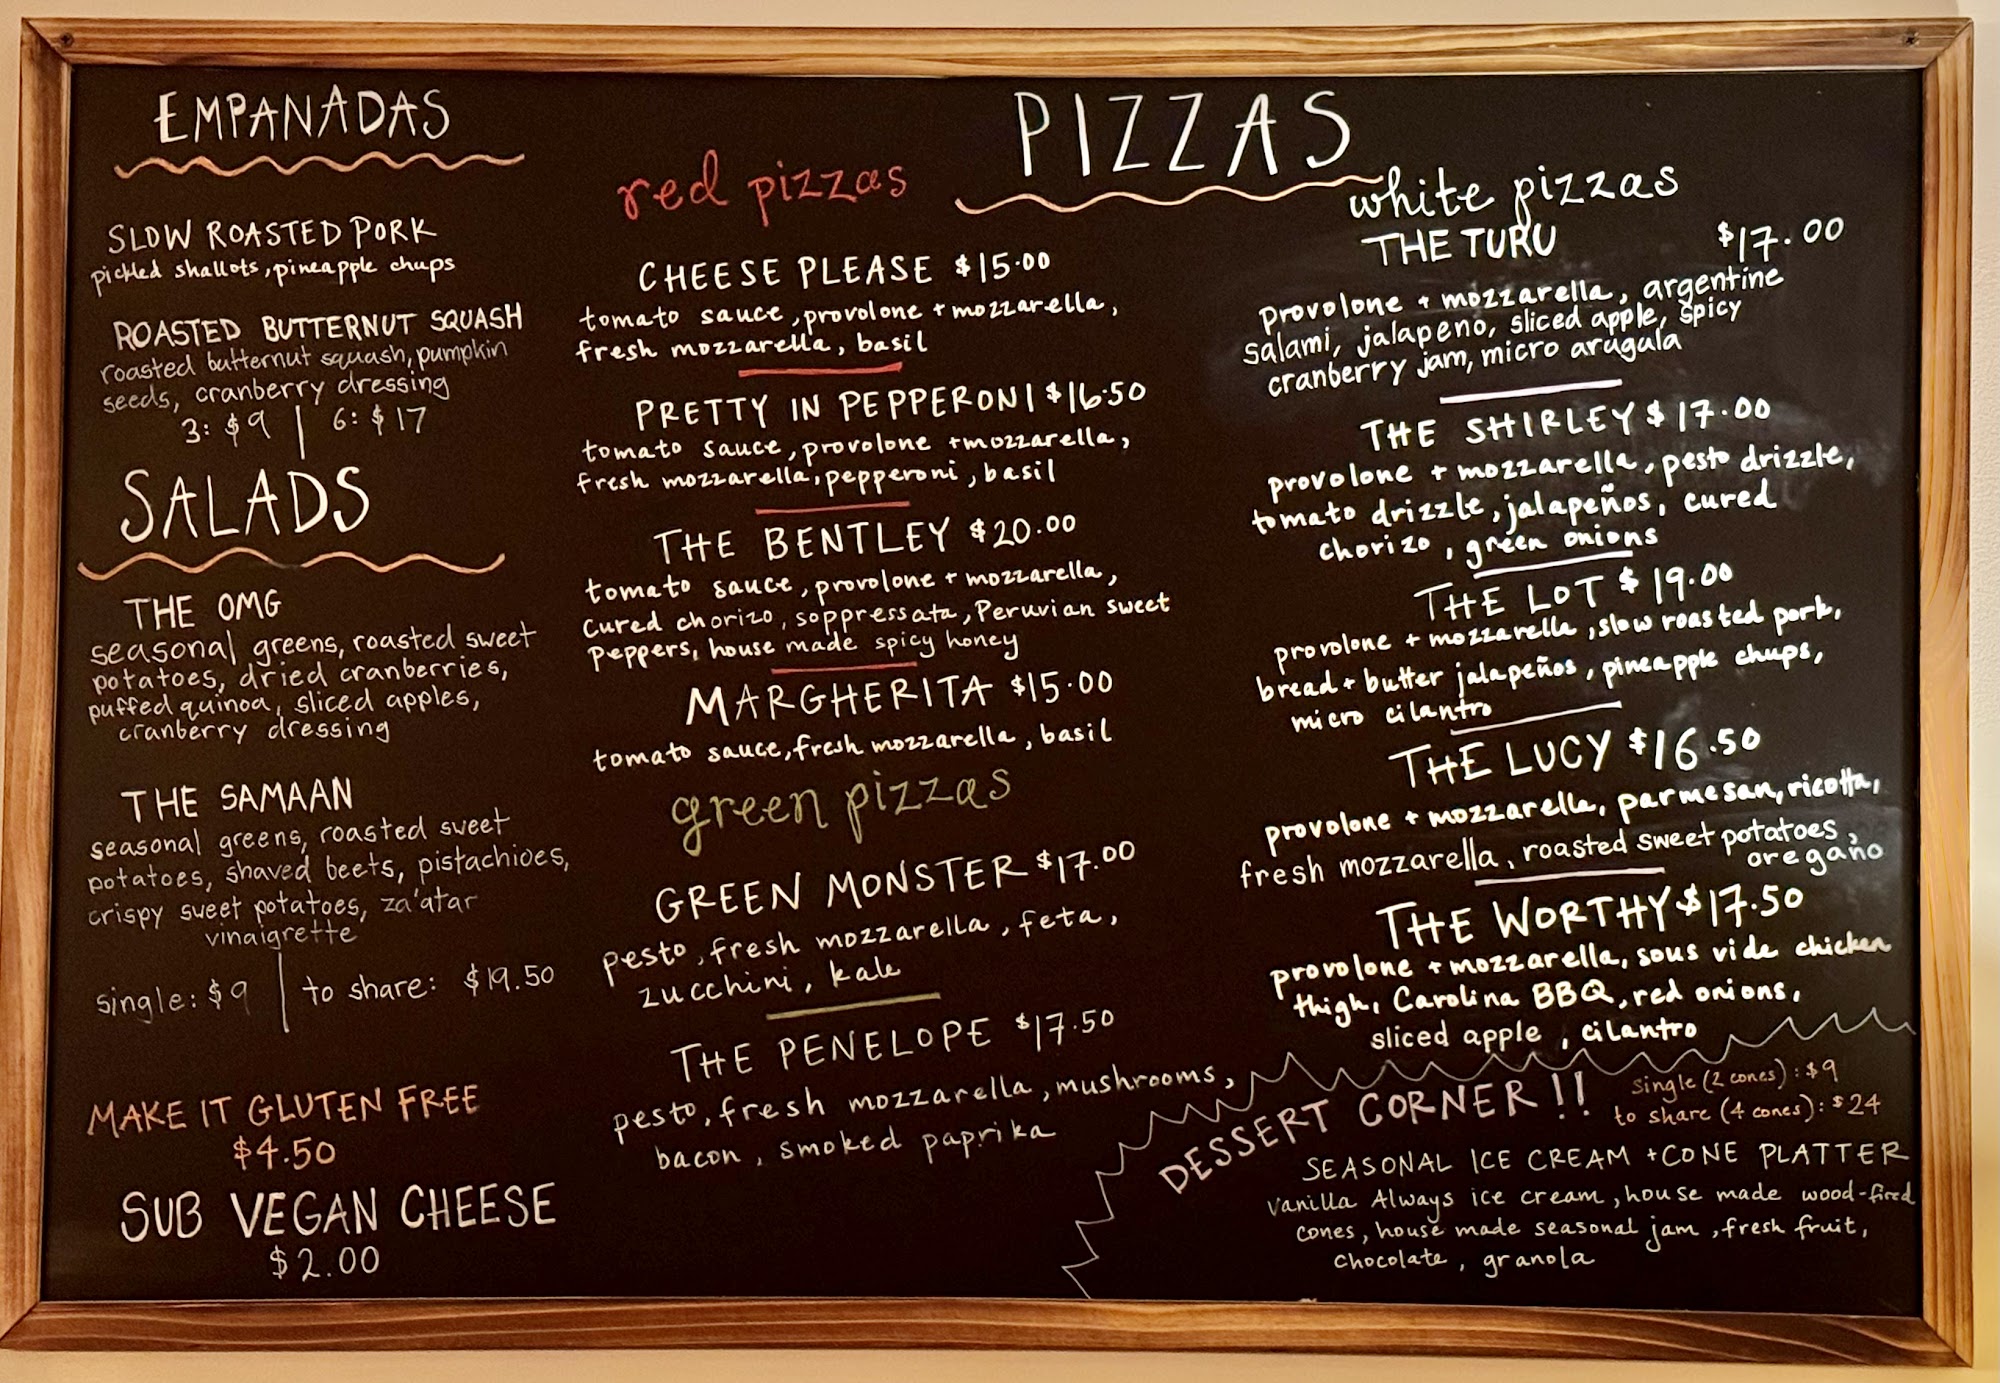 EMPANADAS
SLOW ROASTED PORK
pickled shallots, pineapple chups
ROASTED BUTTERNUT SQUASH
roasted butternut squash, pumpkin
seeds, cranberry dressing
3: $9 | 6: $17
SALADS
THE OMG
seasonal greens, roasted sweet
potatoes, dried cranberries,
puffed quinoa, sliced apples,
cranberry dressing
THE SAMAAN
seasonal greens, roasted sweet
potatoes, shaved beets, pistachioes,
crispy sweet potatoes, za'atar
vinaigrette
single: $9 | to share: $19.50
MAKE IT GLUTEN FREE
$4.50
SUB VEGAN CHEESE
$2.00
PIZZAS
red pizzas
CHEESE PLEASE $15.00
tomato sauce, provolone + mozzarella,
fresh mozzarella, basil
PRETTY IN PEPPERONI $16.50
tomato sauce, provolone + mozzarella,
fresh mozzarella, pepperoni, basil
THE BENTLEY $20.00
tomato sauce, provolone + mozzarella,
cured chorizo, soppressata, Peruvian sweet
peppers, house made spicy honey
MARGHERITA $15.00
tomato sauce, fresh mozzarella, basil
green pizzas
GREEN MONSTER $17.00
pesto, fresh mozzarella, feta,
zucchini, kale
THE PENELOPE $17.50
pesto, fresh mozzarella, mushrooms,
bacon, smoked paprika
white pizzas
THE TURU $17.00
provolone + mozzarella, argentine
salami, jalapeno, sliced apple, spicy
cranberry jam, micro arugula
THE SHIRLEY $17.00
provolone + mozzarella, pesto drizzle,
tomato drizzle, jalapeños, cured
chorizo, green onions
THE LOT $19.00
provolone + mozzarella, slow roasted pork,
bread + butter jalapeños, pineapple chups,
micro cilantro
THE LUCY $16.50
provolone + mozzarella, parmesan, ricotta,
fresh mozzarella, roasted sweet potatoes,
oregano
THE WORTHY $17.50
provolone + mozzarella, sous vide chicken
thigh, Carolina BBQ, red onions,
sliced apple, cilantro
DESSERT CORNER!!
single (2 cones): $9
to share (4 cones): $24
SEASONAL ICE CREAM + CONE PLATTER
Vanilla Always ice cream, house made wood-fired
cones, house made seasonal jam, fresh fruit,
chocolate, granola